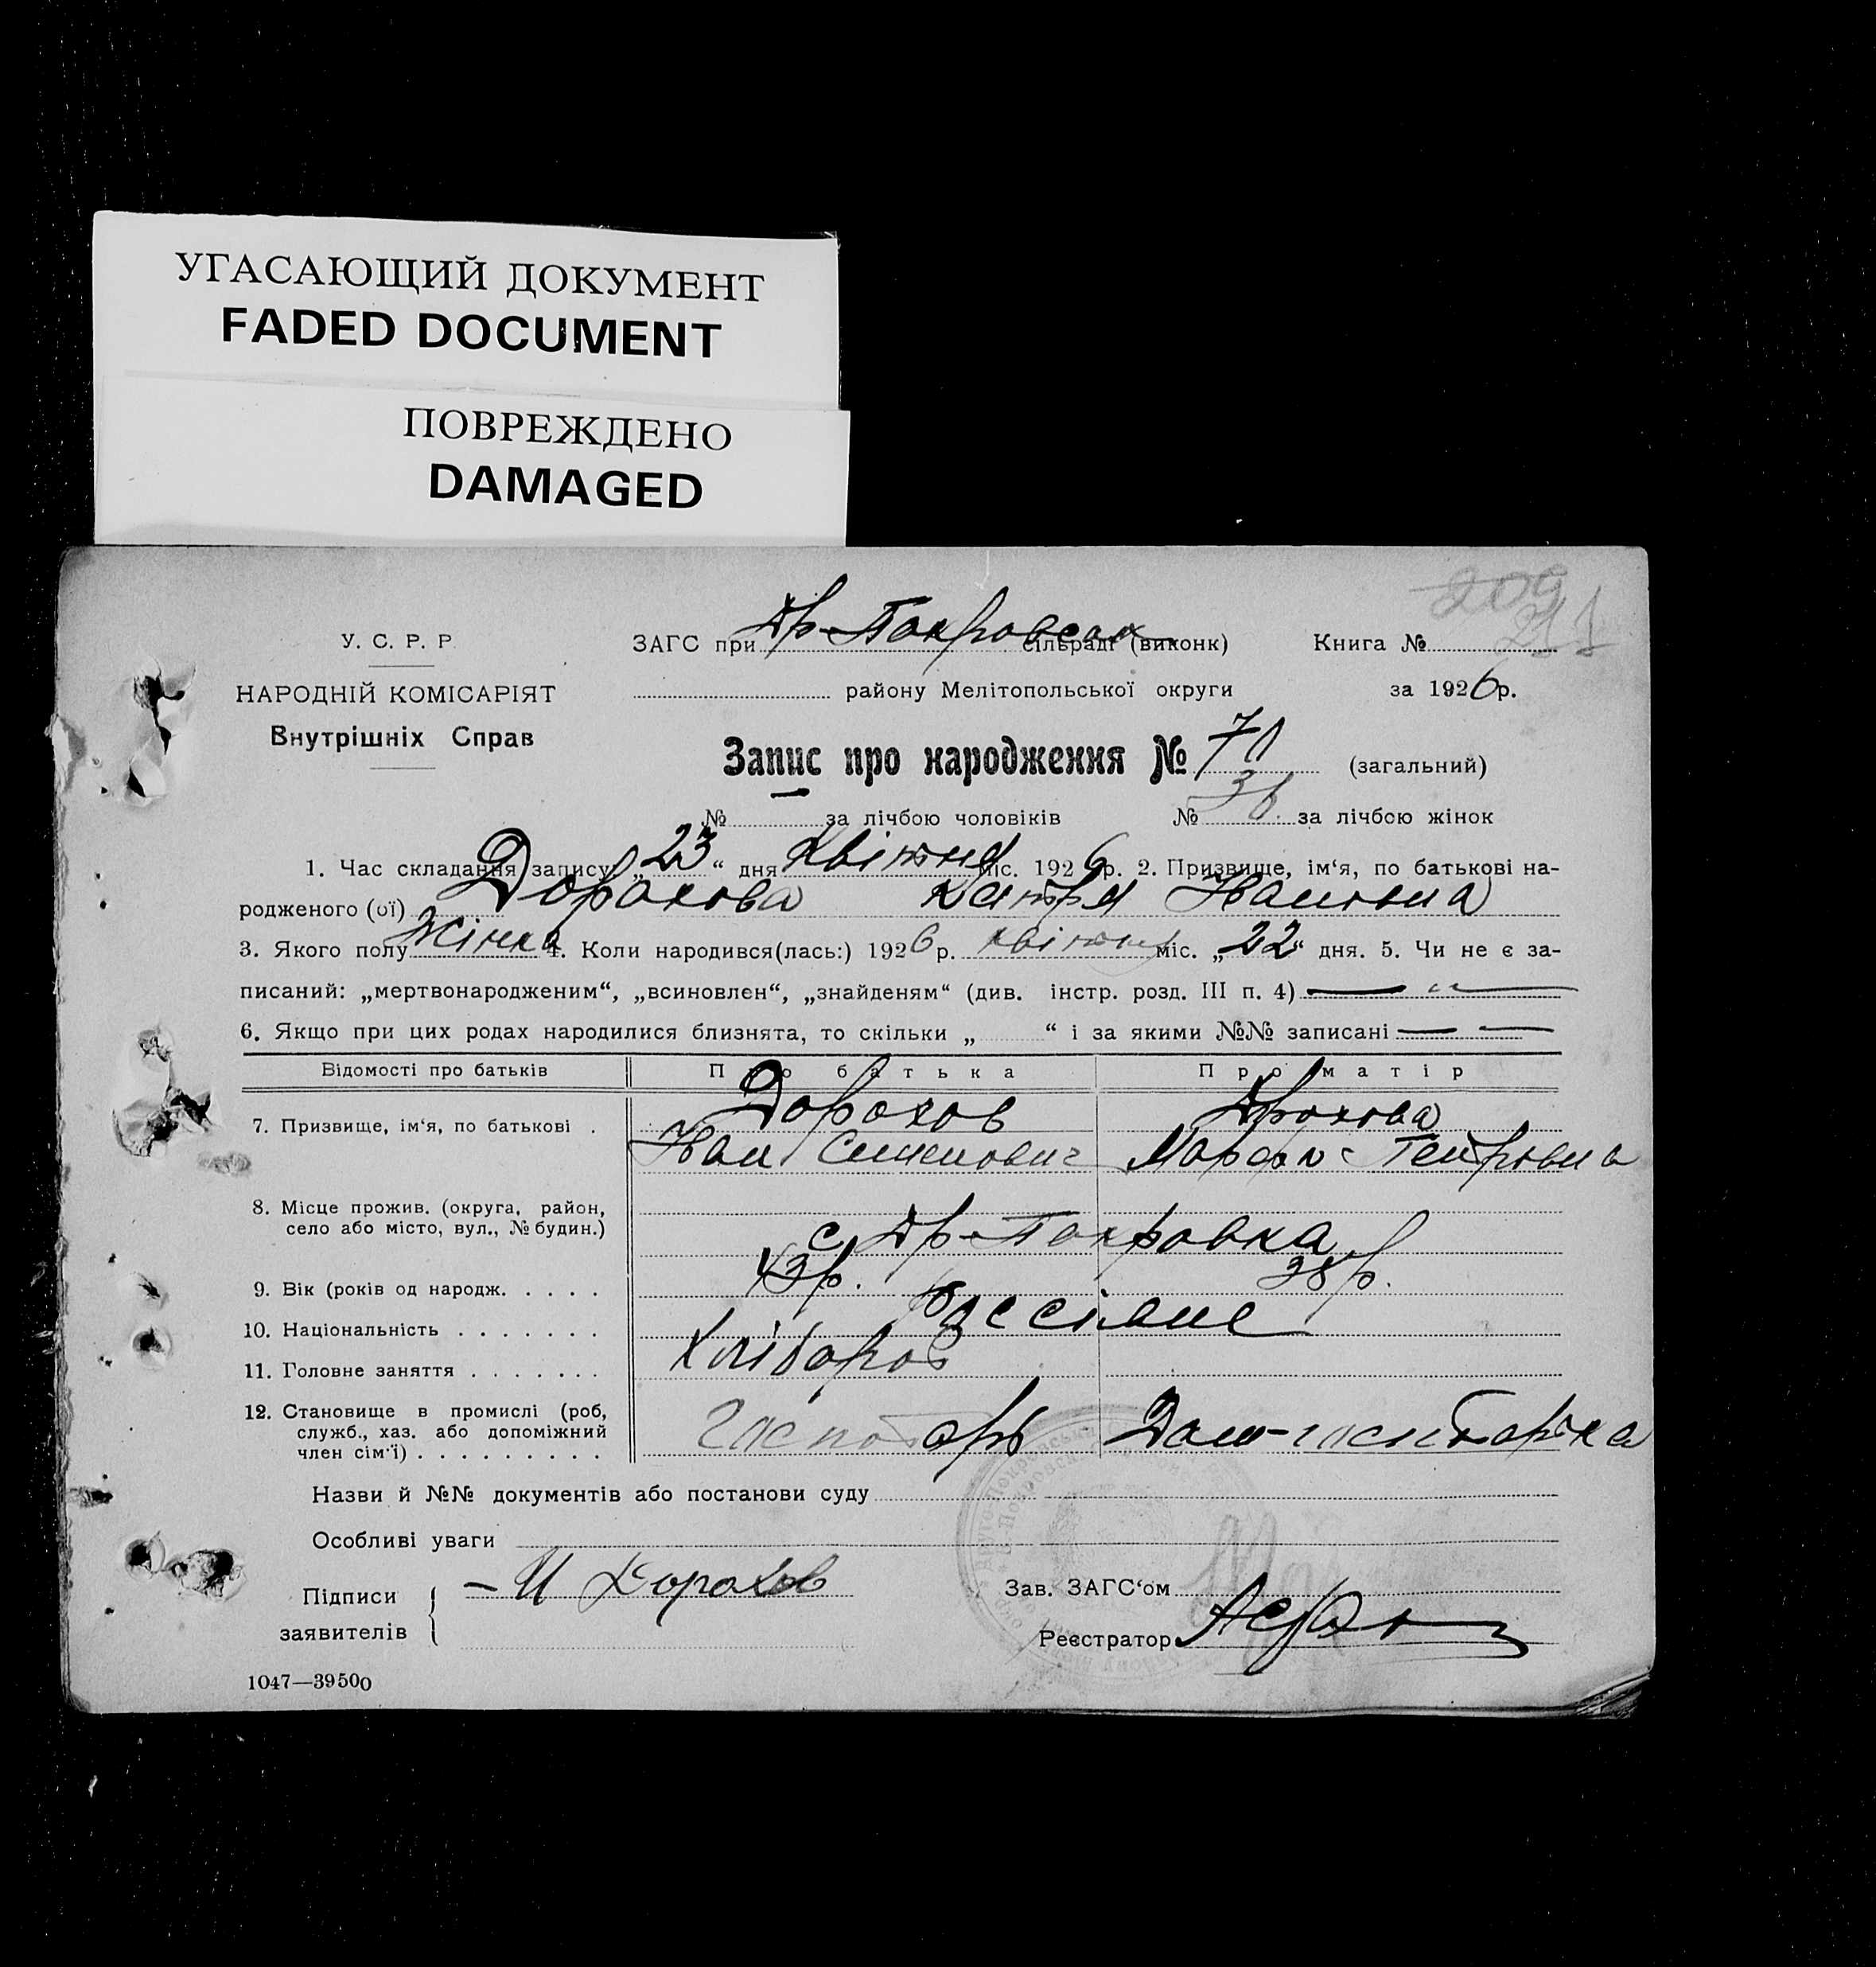 УГАСАЮЩИЙ ДОКУМЕНТ
FADED DOCUMENT
ПОВРЕЖДЕНО
DAMAGED
209
211
У. С. Р. Р.
ЗАГС при Др-Покровском сільраді (виконк)
Книга №
НАРОДНІЙ КОМІСАРІЯТ
району Мелітопольської округи
за 1926 р.
Внутрішніх Справ
Запис про народження № 71 (загальний)
№ за лічбою чоловіків № 36. за лічбою жінок
1. Час складання запису „23“ дня Квітня міс. 1926 р. 2. Призвище, ім'я, по батькові на-
родженого (ої) Дорохова Катря Ивановна
3. Якого полу Жінка 4. Коли народився(лась:) 1926 р. квітня міс. „22“ дня. 5. Чи не є за-
писаний: „мертвонародженим“, „всиновлен“, „знайденям“ (див. інстр. розд. III п. 4) — „ —
6. Якщо при цих родах народилися близнята, то скільки „ “ і за якими №№ записані — —
Відомості про батьків
Про батька
Про матір
7. Призвище, ім'я, по батькові .
Дорохов
Дрохова
Иван Семенович
Марфа Петровна
8. Місце прожив. (округа, район,
село або місто, вул., № будин.)
с Др-Покровка
9. Вік (років од народж. . . . .
43 р.
38 р.
10. Національність . . . . . . .
Россіяне
11. Головне заняття . . . . . . .
Хлібороб
12. Становище в промислі (роб,
служб., хаз. або допоміжний
член сім'ї) . . . . . . . . .
Господарь
Дом-господарка
Назви й №№ документів або постанови суду
Особливі уваги
Підписи
заявителів
— И Дорохов
Зав. ЗАГС'ом
Реєстратор
1047—39500